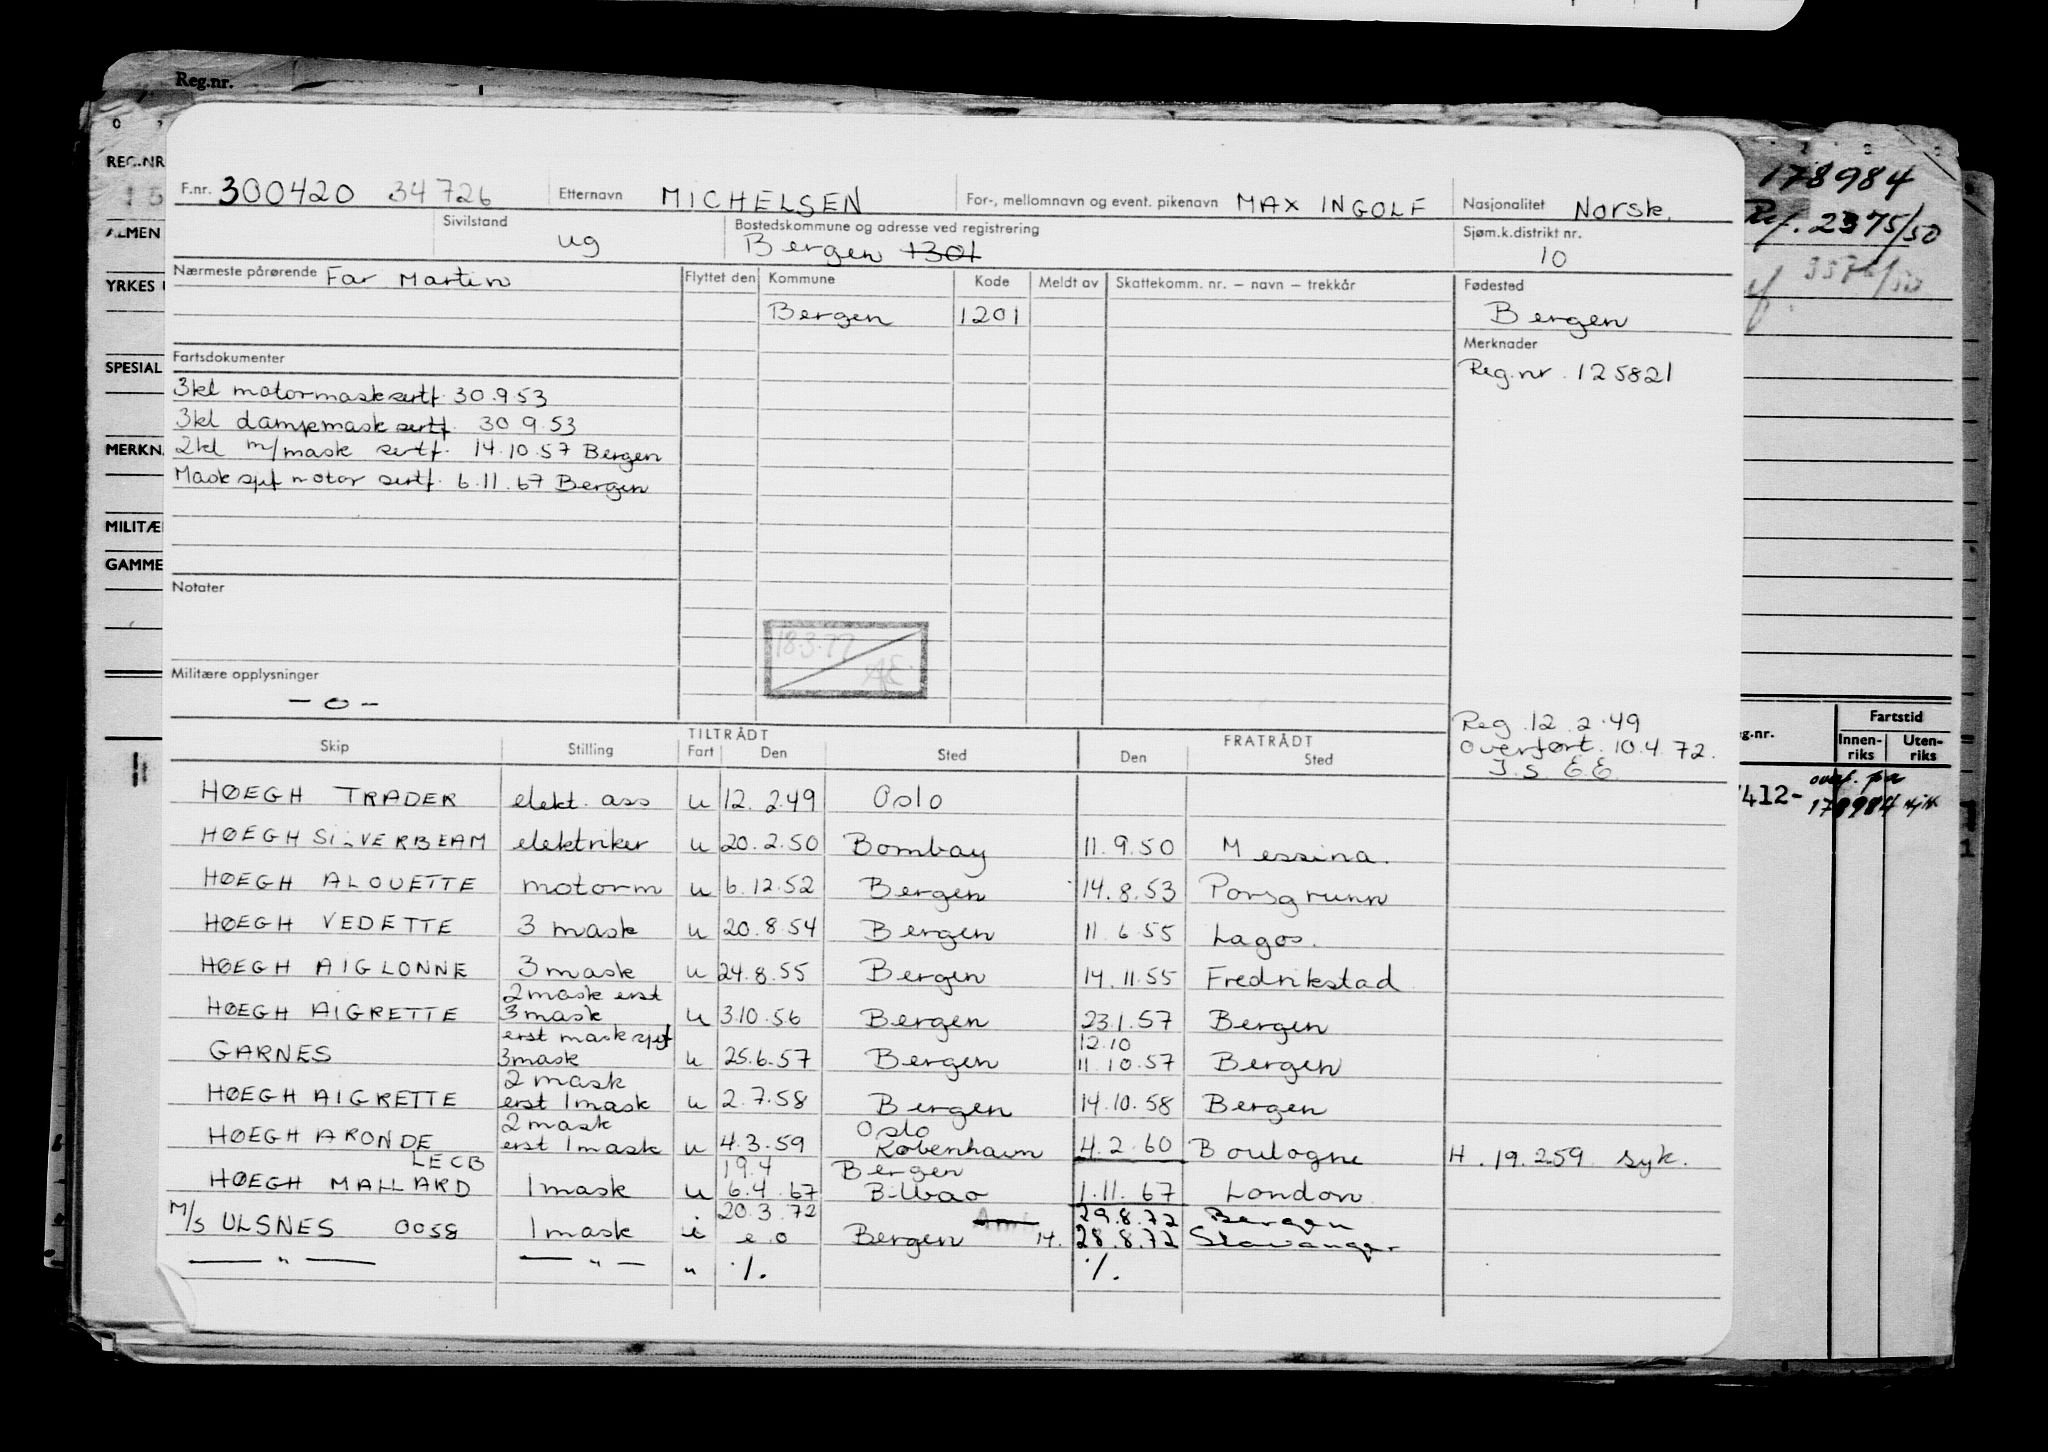 Reg.nr.
REG.NR
178984
F.nr. 300420 34726 Etternavn MICHELSEN For-, mellomnavn og event. pikenavn MAX INGOLF Nasjonalitet Norsk.
Ref. 2375/50
ALMEN
Sivilstand ug Bostedskommune og adresse ved registrering Bergen 1301 Sjøm.k.distrikt nr. 10
Nærmeste pårørende Far Martin Flyttet den Kommune Kode Meldt av Skattekomm. nr. – navn – trekkår Fødested
YRKES
Bergen 1201 Bergen
Fartsdokumenter Merknader
SPESIAL
Reg.nr. 125821
3kl motormask sertf. 30.9.53
3kl dampmask sertf. 30 9.53
MERKN
2kl m/mask sertf. 14.10.57 Bergen
Mask sjef motor sertf. 6.11.67 Bergen
MILITÆ
GAMME
Notater
18.3.77
Militære opplysninger
– o –
Reg. 12.2.49
Overført. 10.4.72.
J.S E.E
Fartstid
g.nr. Innen-riks Uten-riks
TILTRÅDT FRATRÅDT
Skip Stilling Fart Den Sted Den Sted
HØEGH TRADER elekt. ass u 12.2.49 Oslo
412- overf. på
178984
HØEGH SILVERBEAM elektriker u 20.2.50 Bombay 11.9.50 Messina.
HØEGH ALOUETTE motorm u 6.12.52 Bergen 14.8.53 Porsgrunn
HØEGH VEDETTE 3 mask u 20.8.54 Bergen 11.6.55 Lagos.
HØEGH AIGLONNE 3 mask u 24.8.55 Bergen 14.11.55 Fredrikstad
2 mask erst
HØEGH AIGRETTE 3 mask u 3.10.56 Bergen 23.1.57 Bergen
erst mask sjef 12.10
GARNES 3 mask u 25.6.57 Bergen 11.10.57 Bergen
2 mask
HØEGH AIGRETTE erst 1 mask u 2.7.58 Bergen 14.10.58 Bergen
2 mask Oslo
HØEGH ARONDE erst 1 mask u 4.3.59 København 4.2.60 Boulogne H. 19.2.59 syk.
LECB 19.4 Bergen
HØEGH MALLARD 1 mask u 6.4.67 Bilbao 1.11.67 London
20.3.72 29.8.72 Bergen
M/S ULSNES 0058 1 mask i e.o Bergen 14. 28.8.72 Stavanger
— " — — " — " ./. ./.